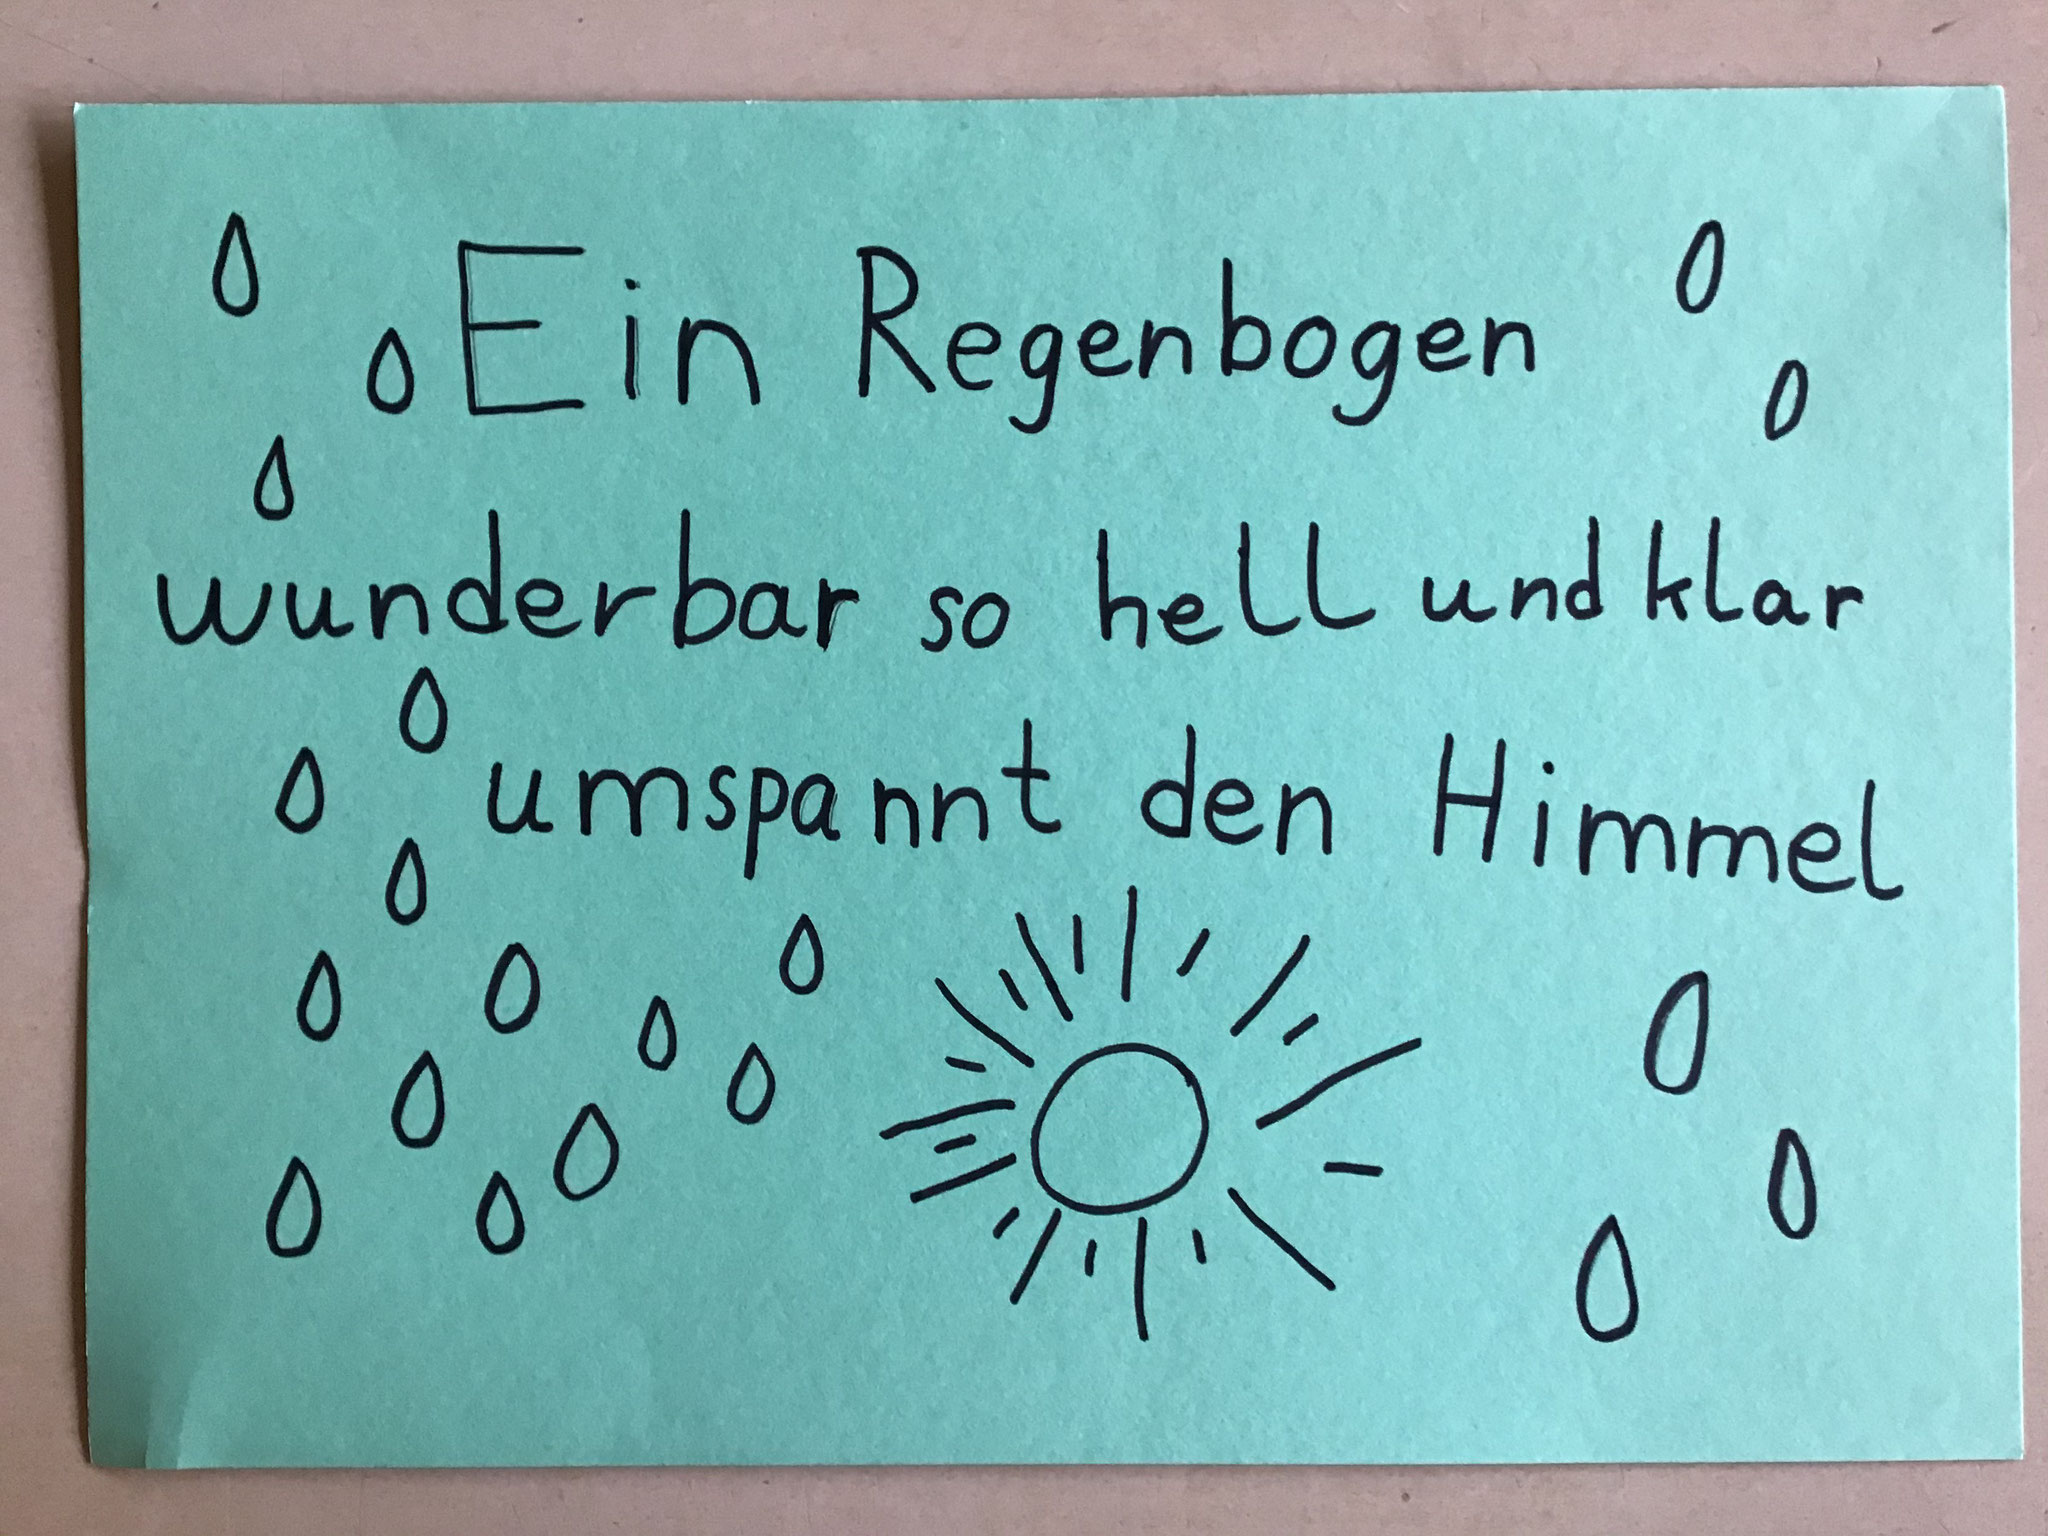 Ein Regenbogen
wunderbar so hell und klar
umspannt den Himmel